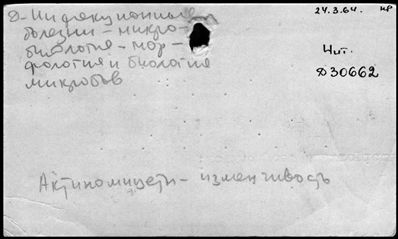 Д-Инфекционные
болезни - микро-
биология - мор-
фология и биология
микробов
24.3.64. кр
Чит.
Д30662
Актиномицеты - изменчивость